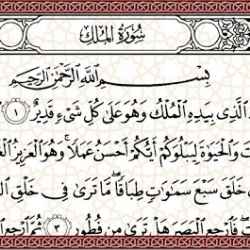 سُورَةُ المُلْكِ
بِسْمِ اللَّهِ الرَّحْمَٰنِ الرَّحِيمِ
الَّذِي بِيَدِهِ الْمُلْكُ وَهُوَ عَلَىٰ كُلِّ شَيْءٍ قَدِيرٌ ١
تَ وَالْحَيَوٰةَ لِيَبْلُوَكُمْ أَيُّكُمْ أَحْسَنُ عَمَلًا ۚ وَهُوَ الْعَزِيزُ
خَلَقَ سَبْعَ سَمَٰوَٰتٍ طِبَاقًا ۖ مَّا تَرَىٰ فِي خَلْقِ
فَارْجِعِ الْبَصَرَ هَلْ تَرَىٰ مِن فُطُورٍ ٣ ثُمَّ ارْجِعِ